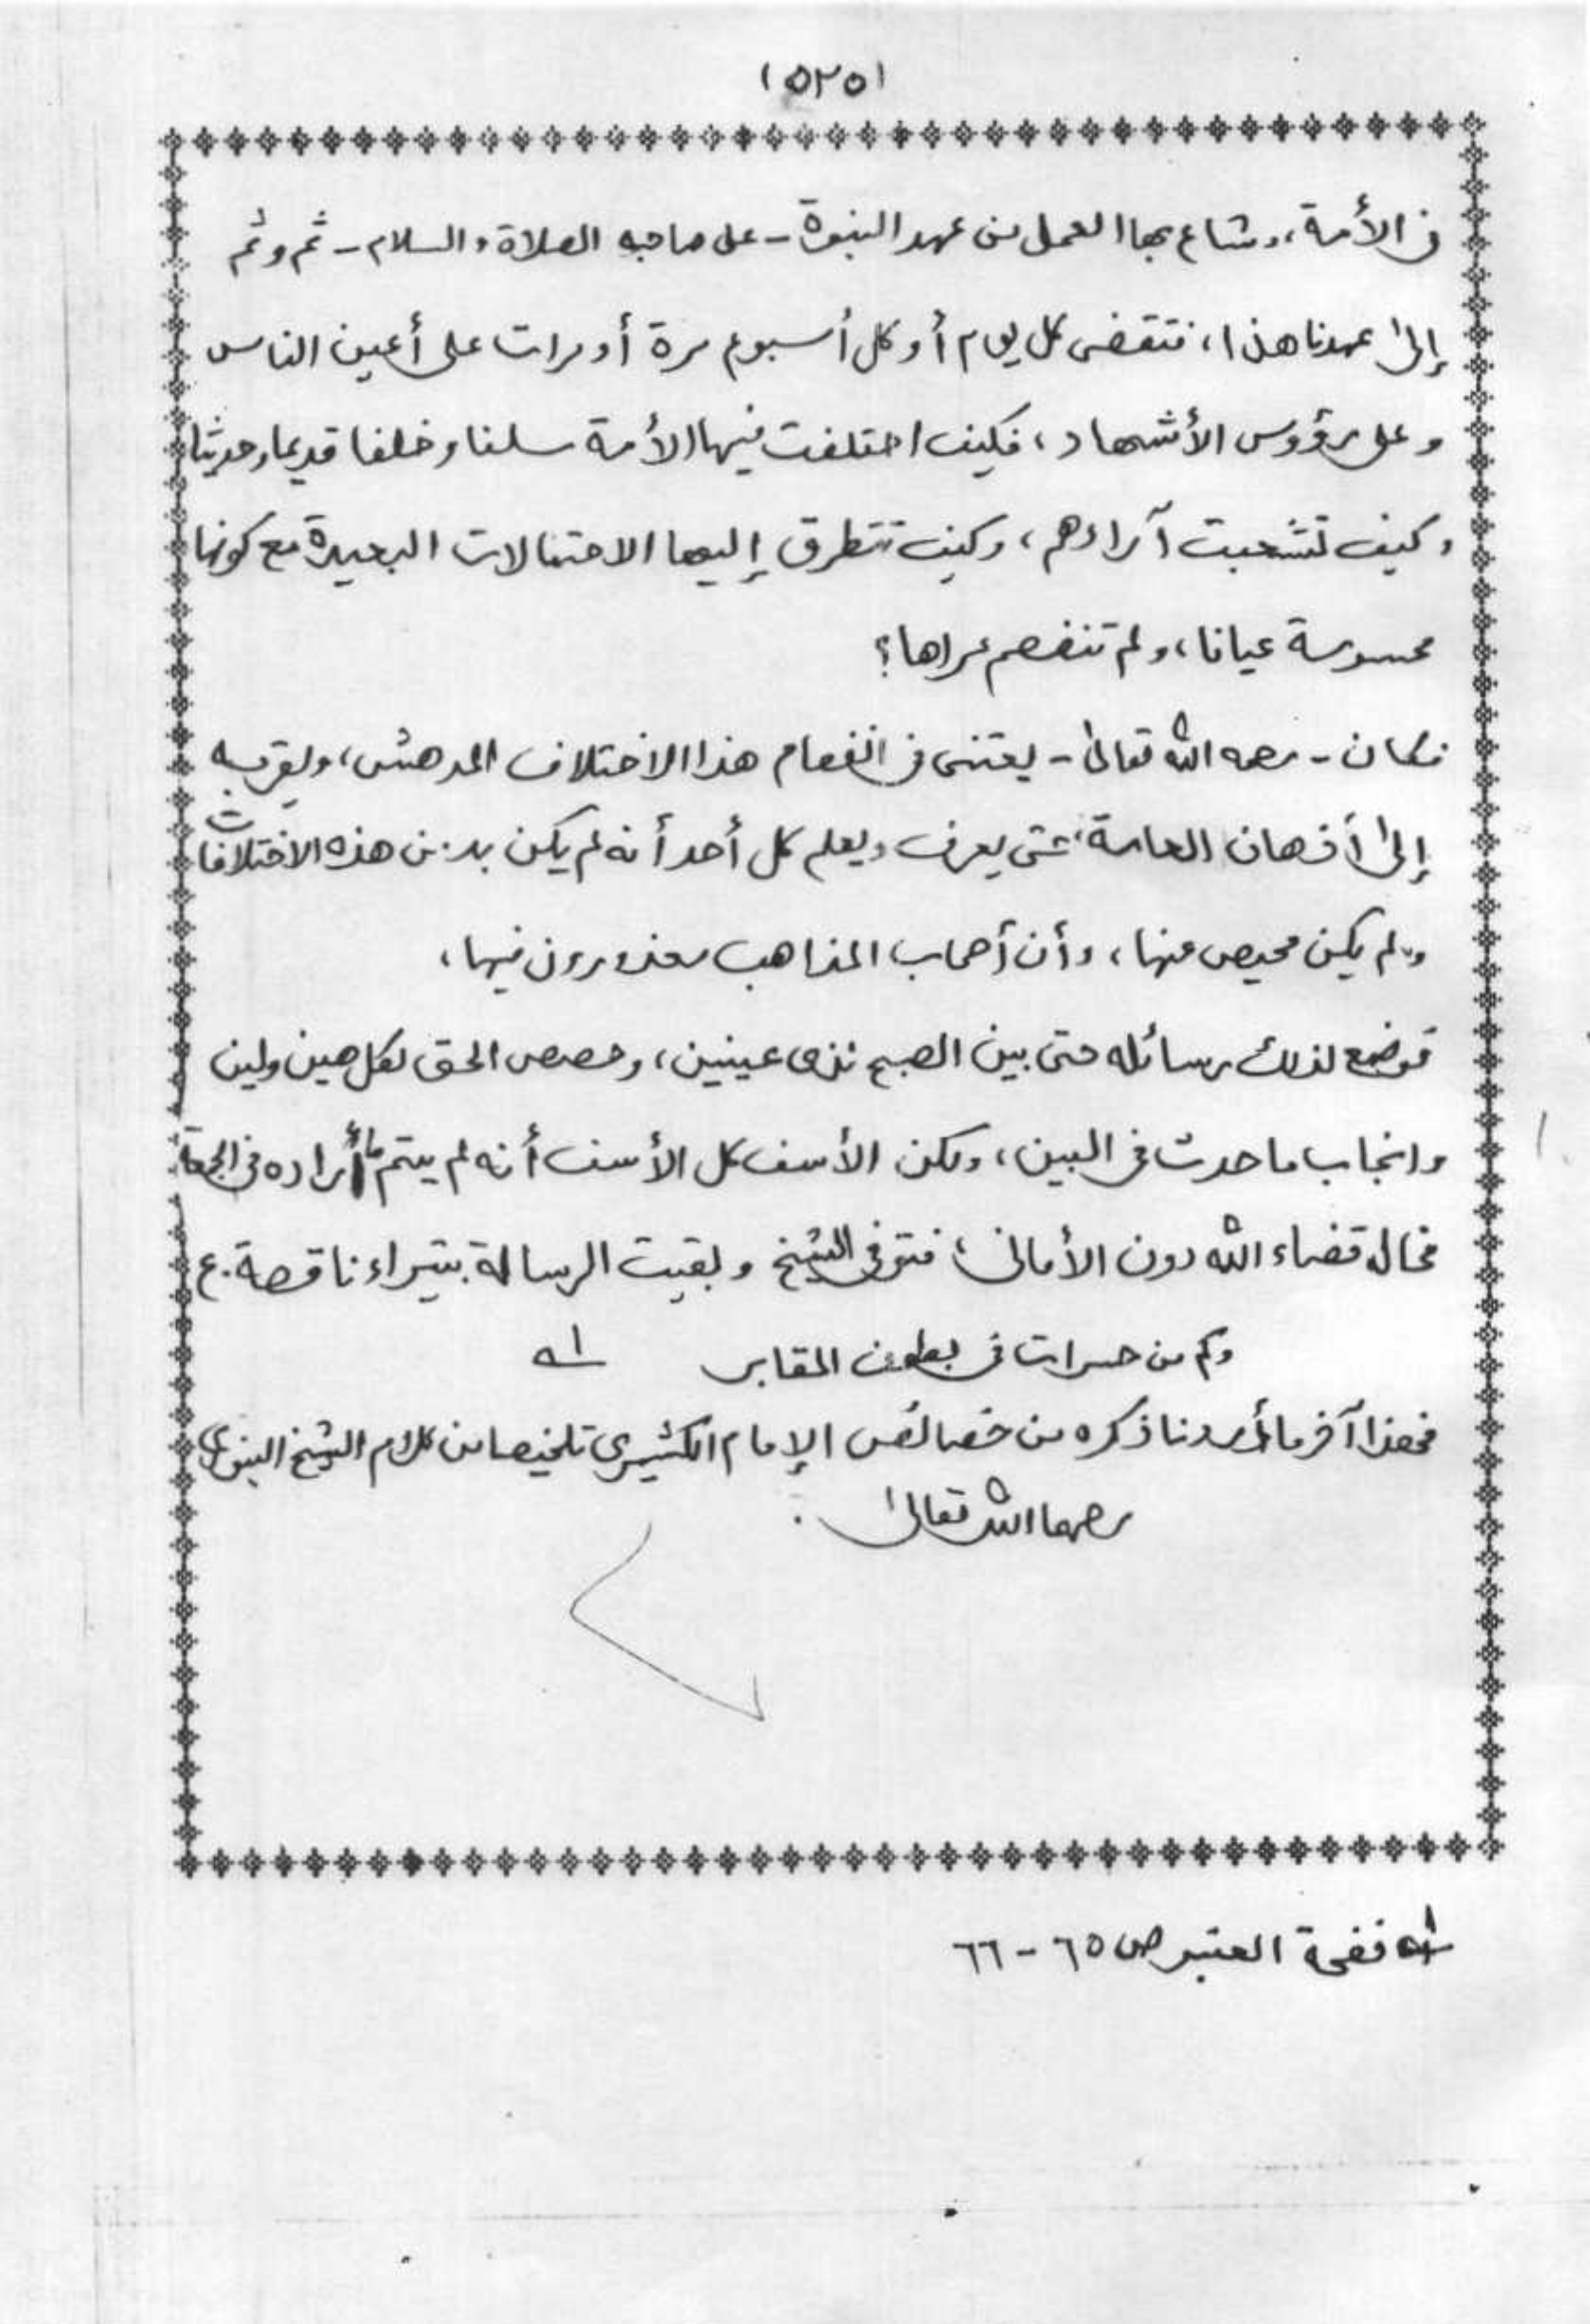 (٥٢٥)
فى الأمة، وشاع بها العمل من عهد النبوة - على صاحبه الصلاة والسلام - ثم وثم
إلى عهدنا هذا، فتقضى كل يوم أو كل أسبوع مرة أو مرات على أعين الناس
وعلى رؤوس الأشهاد، فكيف اختلفت فيها الأمة سلفا وخلفا قديما وحديثا
وكيف تشعبت آراءهم، وكيف تتطرق إليها الاحتمالات البعيدة مع كونها
محسوسة عيانا، ولم تنفصم عراها؟
فكان - رحمه الله تعالى - يعتنى فى انفصام هذا الاختلاف المدهش، ويقربه
إلى أذهان العامة، حتى يعرف ويعلم كل أحد أنه لم يكن بد من هذه الاختلافات
ولم يكن محيص عنها، وأن أصحاب المذاهب معذورون فيها،
فوضع لذلك رسائله حتى بين الصبح لذى عينين، وحصص الحق لكل هين ولين
وانجاب ما حدث فى البين، ولكن الأسف كل الأسف أنه لم يتم ما أراده فى الجمعة
فحال قضاء الله دون الأمانى، فتوفى الشيخ وبقيت الرسالة بتيراء ناقصة. ع
وكم من حسرات فى بطون المقابر ١ـه
فهذا آخر ما أردنا ذكره من خصائص الإمام الكشميرى تلخيصا من كلام الشيخ البنورى
رحمهما الله تعالى.
١ـه نفحة العنبر ص ٦٥ - ٦٦